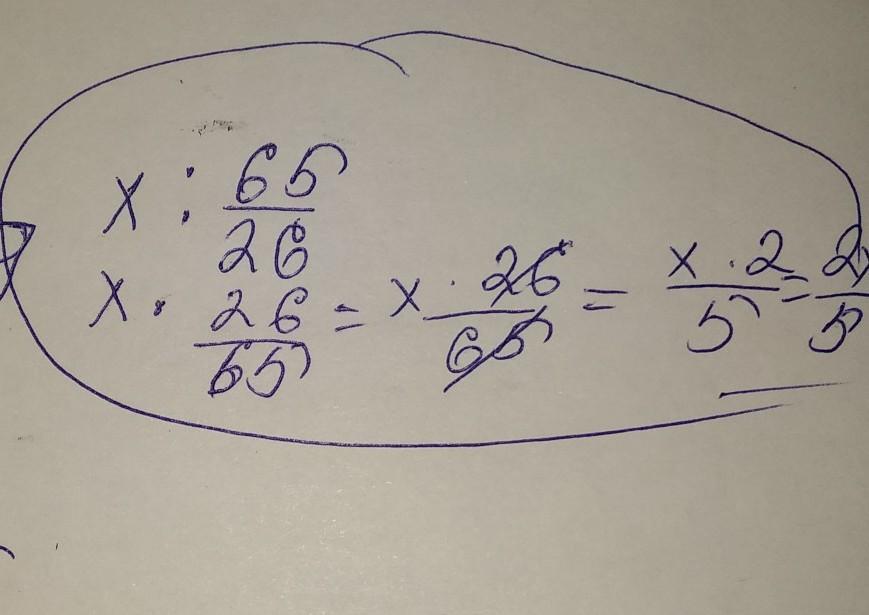 x : 65/26
x · 26/65 = x · 26/65 = x · 2/5 = 2x/5